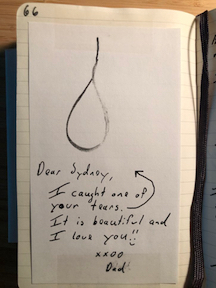 66
Dear Sydney,
I caught one of
your tears.
It is beautiful and
I love you!!
xxoo
Dad